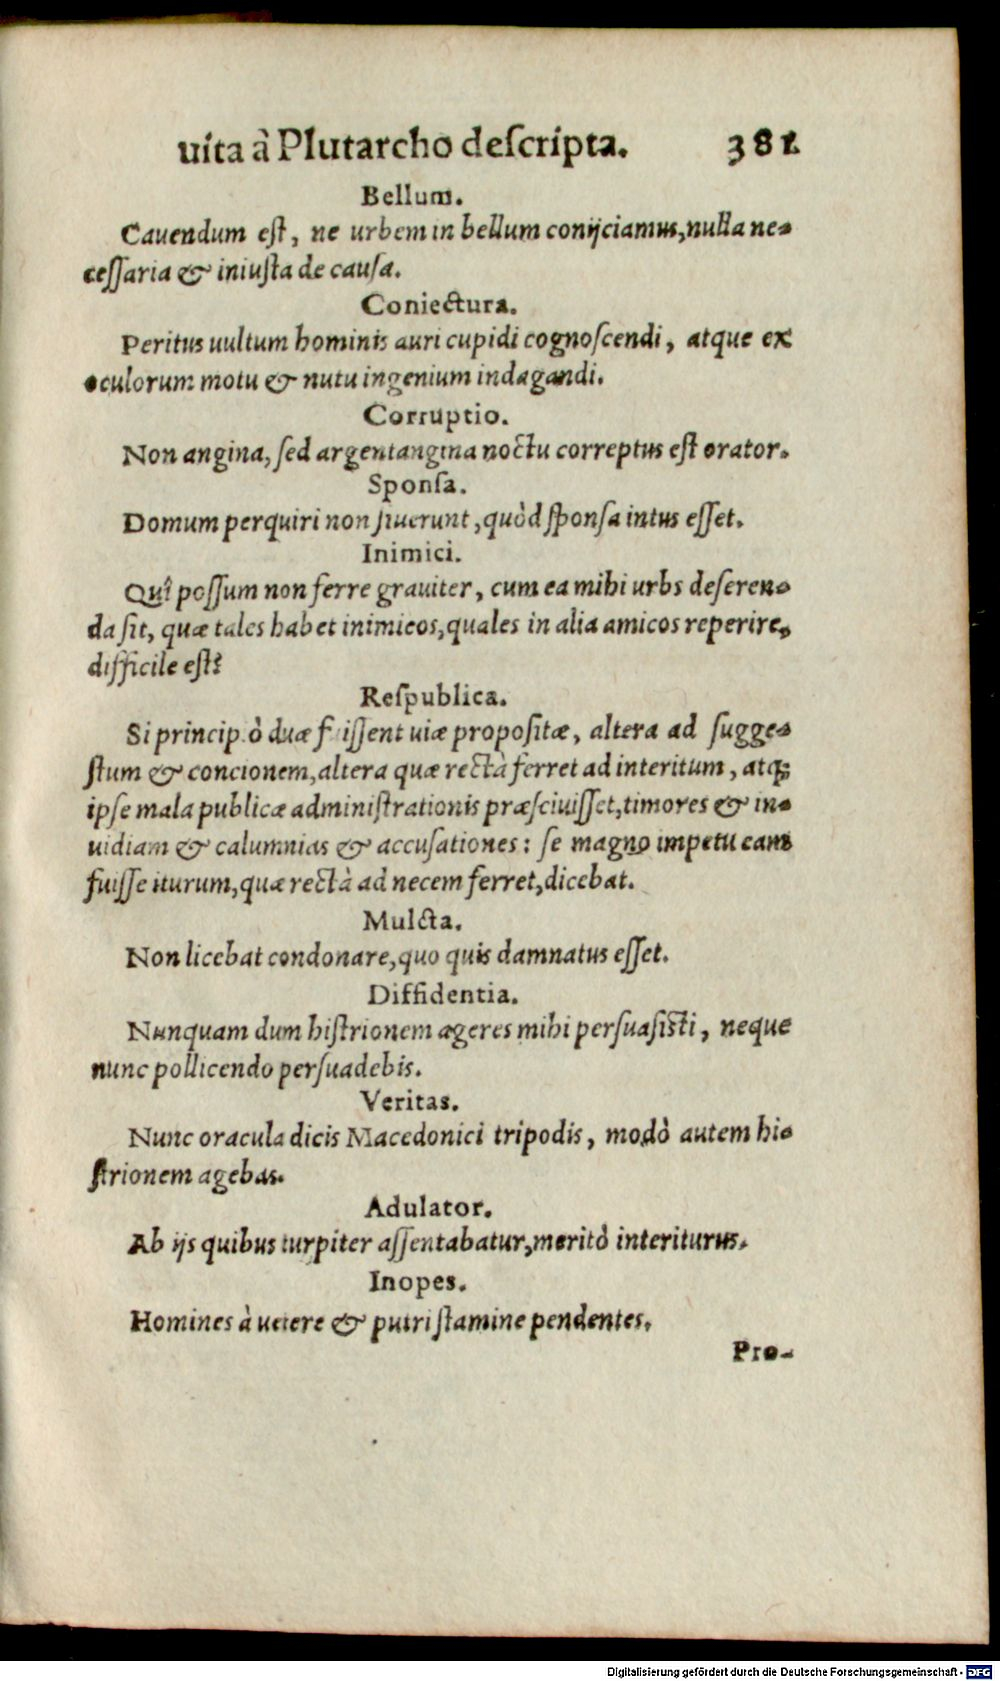 uita à Plutarcho deſcripta. 381
Bellum.
Cauendum eſt, ne urbem in bellum conijciamus, nulla ne-
ceſſaria & iniuſta de cauſa.
Coniectura.
Peritus uultum hominis auri cupidi cognoſcendi, atque ex
oculorum motu & nutu ingenium indagandi.
Corruptio.
Non angina, ſed argentangina noctu correptus eſt orator.
Sponſa.
Domum perquiri non ſiuerunt, quòd ſponſa intus eſſet.
Inimici.
Quî poſſum non ferre grauiter, cum ea mihi urbs deſeren-
da ſit, quæ tales habet inimicos, quales in alia amicos reperire,
difficile eſt?
Reſpublica.
Si principiò duæ fuiſſent uiæ propoſitæ, altera ad ſugge-
ſtum & concionem, altera quæ rectà ferret ad interitum, atq;
ipſe mala publicæ adminiſtrationis præſciuiſſet, timores & in-
uidiam & calumnias & accuſationes: ſe magno impetu eam
fuiſſe iturum, quæ rectà ad necem ferret, dicebat.
Mulcta.
Non licebat condonare, quo quis damnatus eſſet.
Diffidentia.
Nunquam dum hiſtrionem ageres mihi perſuaſiſti, neque
nunc pollicendo perſuadebis.
Veritas.
Nunc oracula dicis Macedonici tripodis, modò autem hi-
ſtrionem agebas.
Adulator.
Ab ijs quibus turpiter aſſentabatur, meritò interiturus.
Inopes.
Homines à uetere & putri ſtamine pendentes.
Pro-
Digitalisierung gefördert durch die Deutsche Forschungsgemeinschaft - DFG